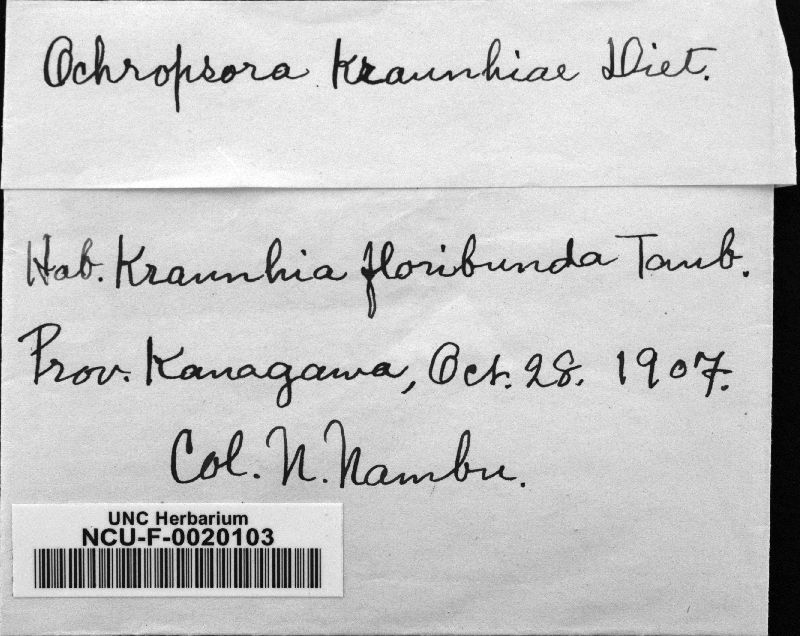 Ochropsora Kraunhiae Diet.
Hab. Kraunhia floribunda Taub.
Prov. Kanagawa, Oct. 28. 1907.
Col. N. Nambu.
UNC Herbarium
NCU-F-0020103